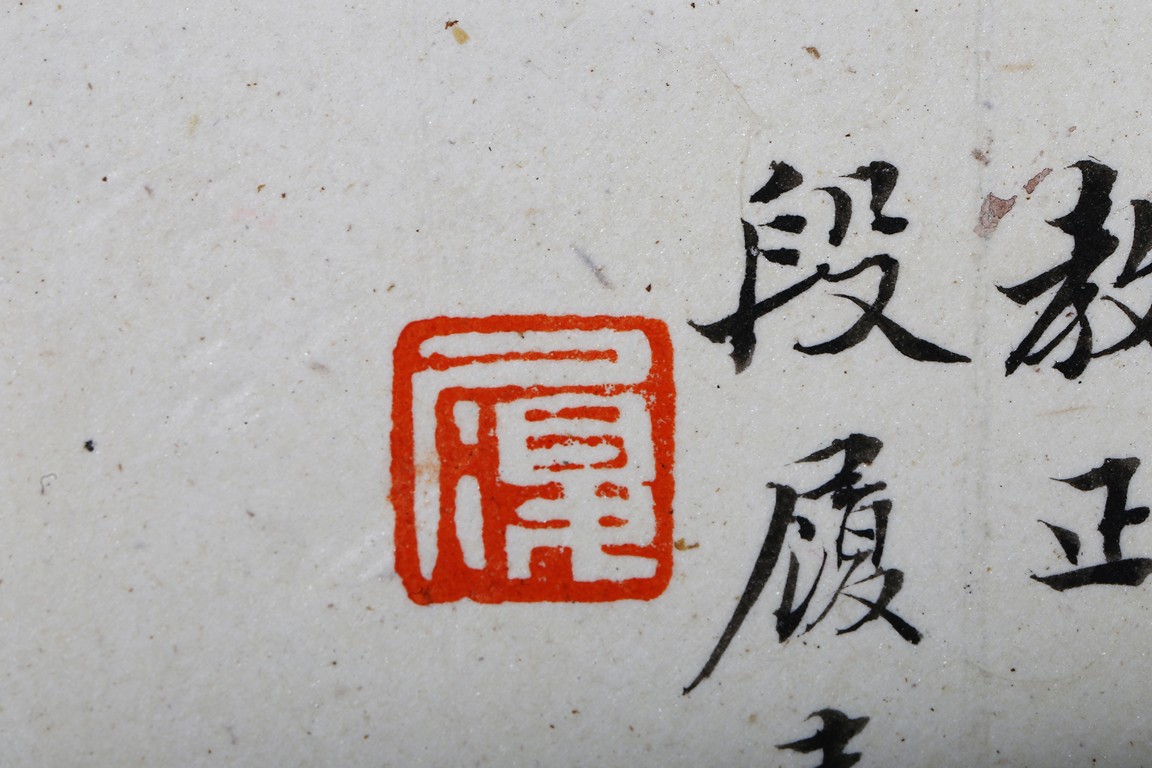 教正
段履
履